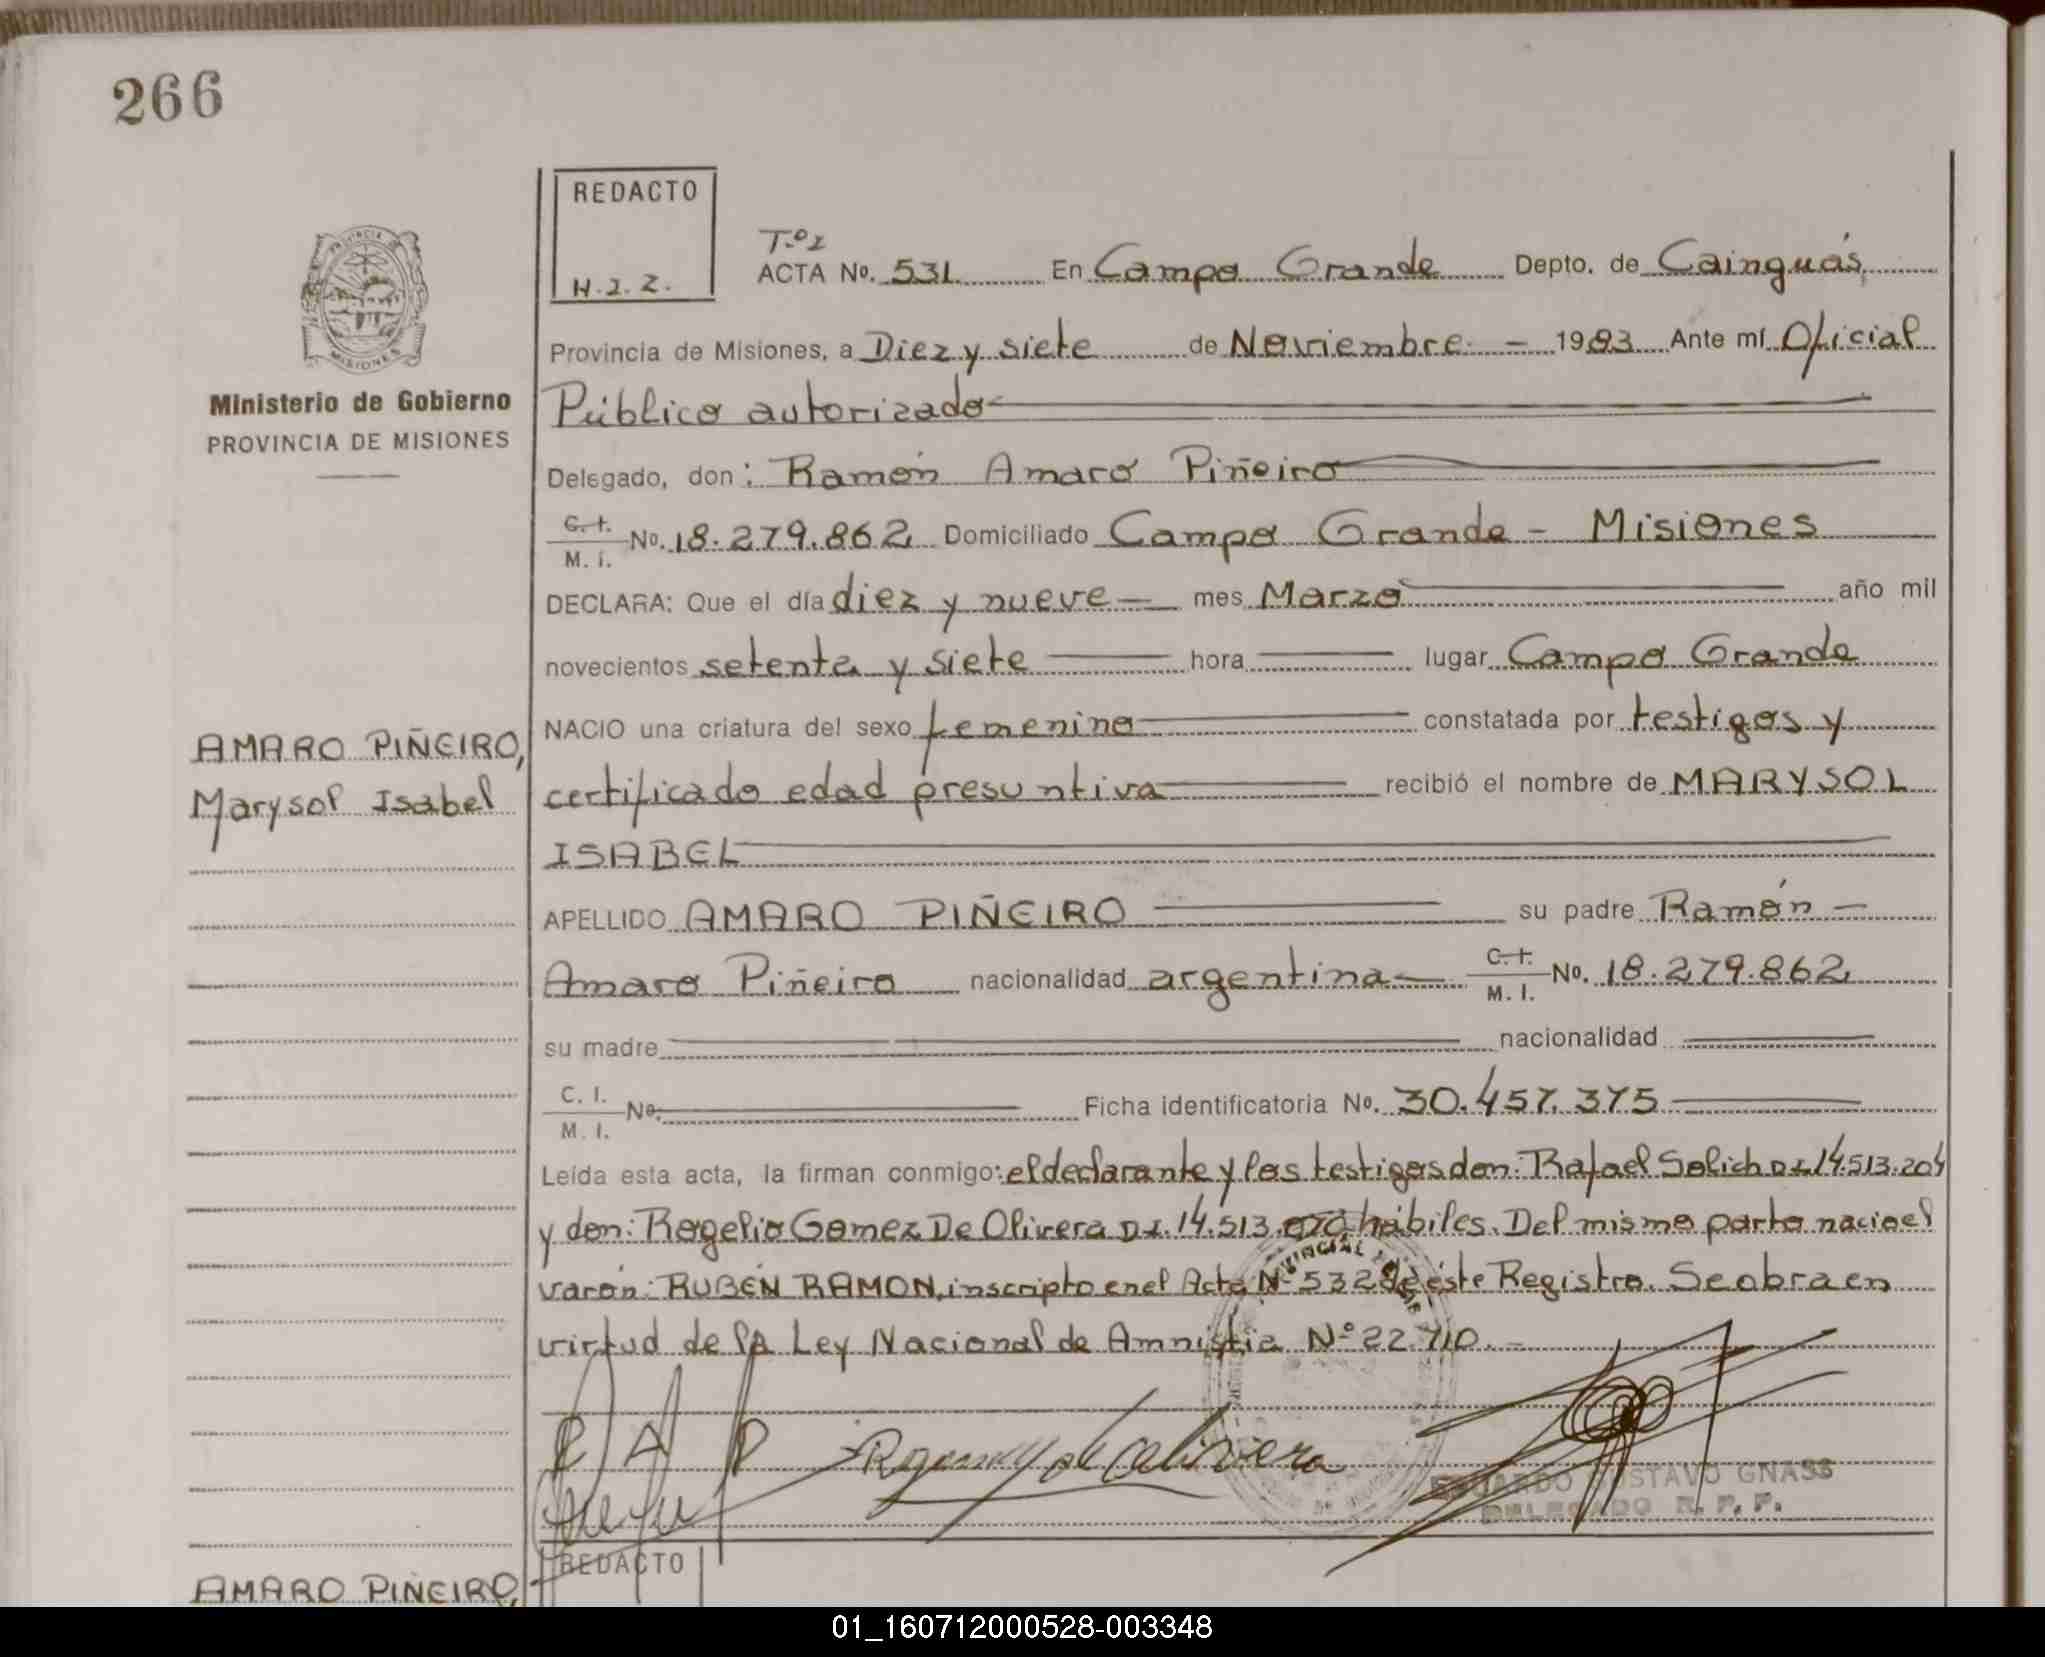 266
REDACTO
H.I.Z.
Tº I
ACTA No. 531 En Campo Grande Depto. de Cainguás,
Provincia de Misiones, a Diez y siete de Noviembre - 1983 Ante mí Oficial
Público autorizado
Delegado, don: Ramón Amaro Piñeiro
C.I. M. I. No. 18.279.862 Domiciliado Campo Grande - Misiones
DECLARA: Que el día diez y nueve — mes Marzo año mil
novecientos setenta y siete — hora — lugar Campo Grande
NACIO una criatura del sexo femenino constatada por testigos y
certificado edad presuntiva recibió el nombre de MARYSOL
ISABEL
APELLIDO AMARO PIÑEIRO su padre Ramón —
Amaro Piñeiro nacionalidad argentina — C.I. M. I. No. 18.279.862
su madre nacionalidad
C. I. M. I. No. Ficha identificatoria No. 30.457.375
Leída esta acta, la firman conmigo: el declarante y los testigos don: Rafael Solich D.I. 14.513.204
y don: Rogelio Gomez De Olivera D.I. 14.513.070, hábiles. Del mismo parto nacio el
varón: RUBÉN RAMON, inscripto en el Acta Nº 532 de éste Registro. Se obra en
virtud de la Ley Nacional de Amnistia Nº 22.710. -
R A P
EDUARDO GUSTAVO GNASS
DELEGADO R. P. P.
Ministerio de Gobierno
PROVINCIA DE MISIONES
AMARO PIÑEIRO,
Marysol Isabel
REDACTO
AMARO PIÑEIRO,
01_160712000528-003348